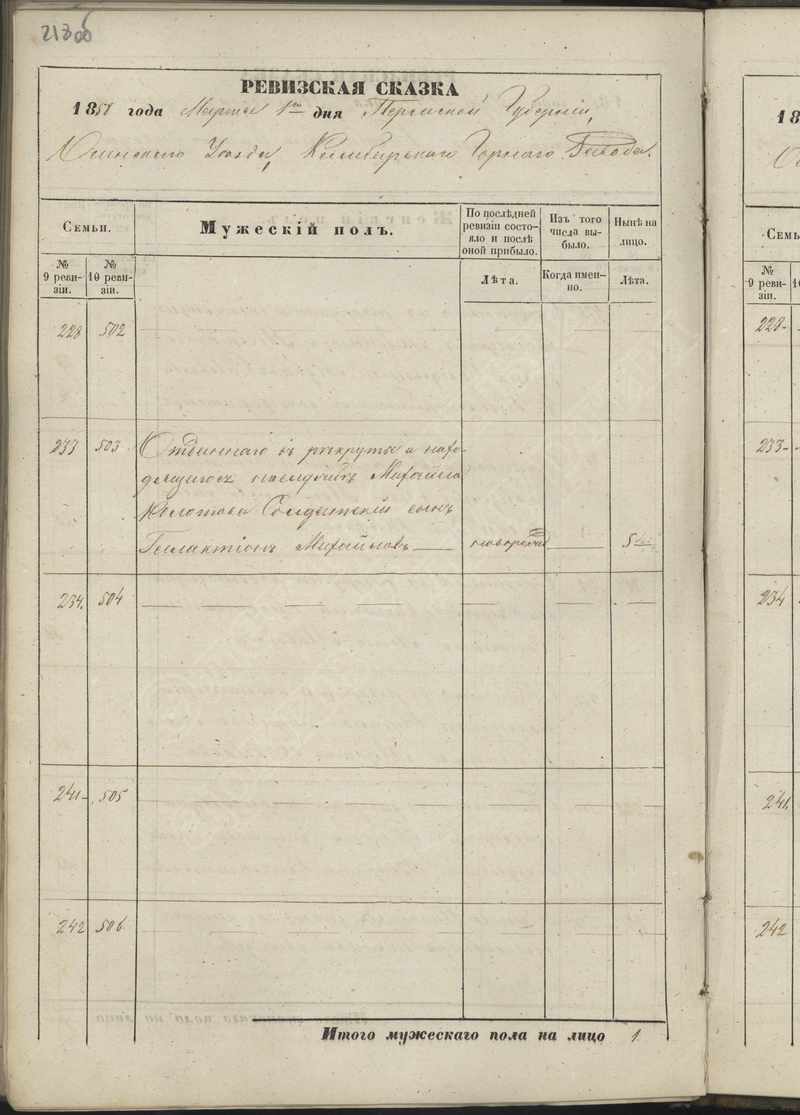 РЕВИЗСКАЯ СКАЗКА
1858 года Марта 1го дня Пермской Губерніи,
Осинскаго Уѣзда, Камбарскаго Горнаго Завода.
Семьи.
Мужескій полъ.
По послѣдней ревизіи состояло и послѣ оной прибыло.
Изъ того числа выбыло.
Нынѣ на лицо.
№ 9 ревизіи.
№ 10 ревизіи.
Лѣта.
Когда именно.
Лѣта.
228 502
233 503 Отданнаго въ рекруты и нахо-
Михайла
Солдатскій сынъ
Галактіонъ Михайловъ новорожден 5
234. 504
241 505
242 506
Итого мужескаго пола на лицо 1
18
Семь
№ 9 ревизіи.
228
233
234
241
242